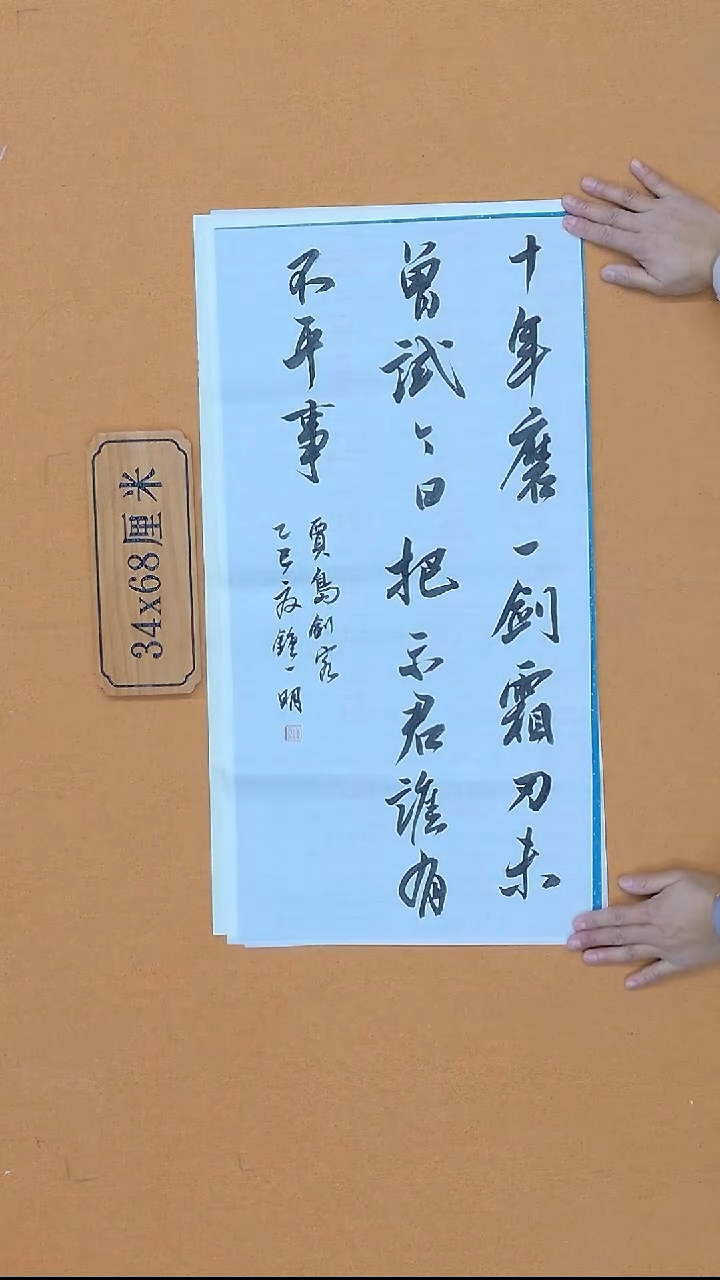 十年磨一剑霜刃未
曾試今日把示君誰有
不平事
賈島剑客
乙巳夜鍾一明
34x68厘米